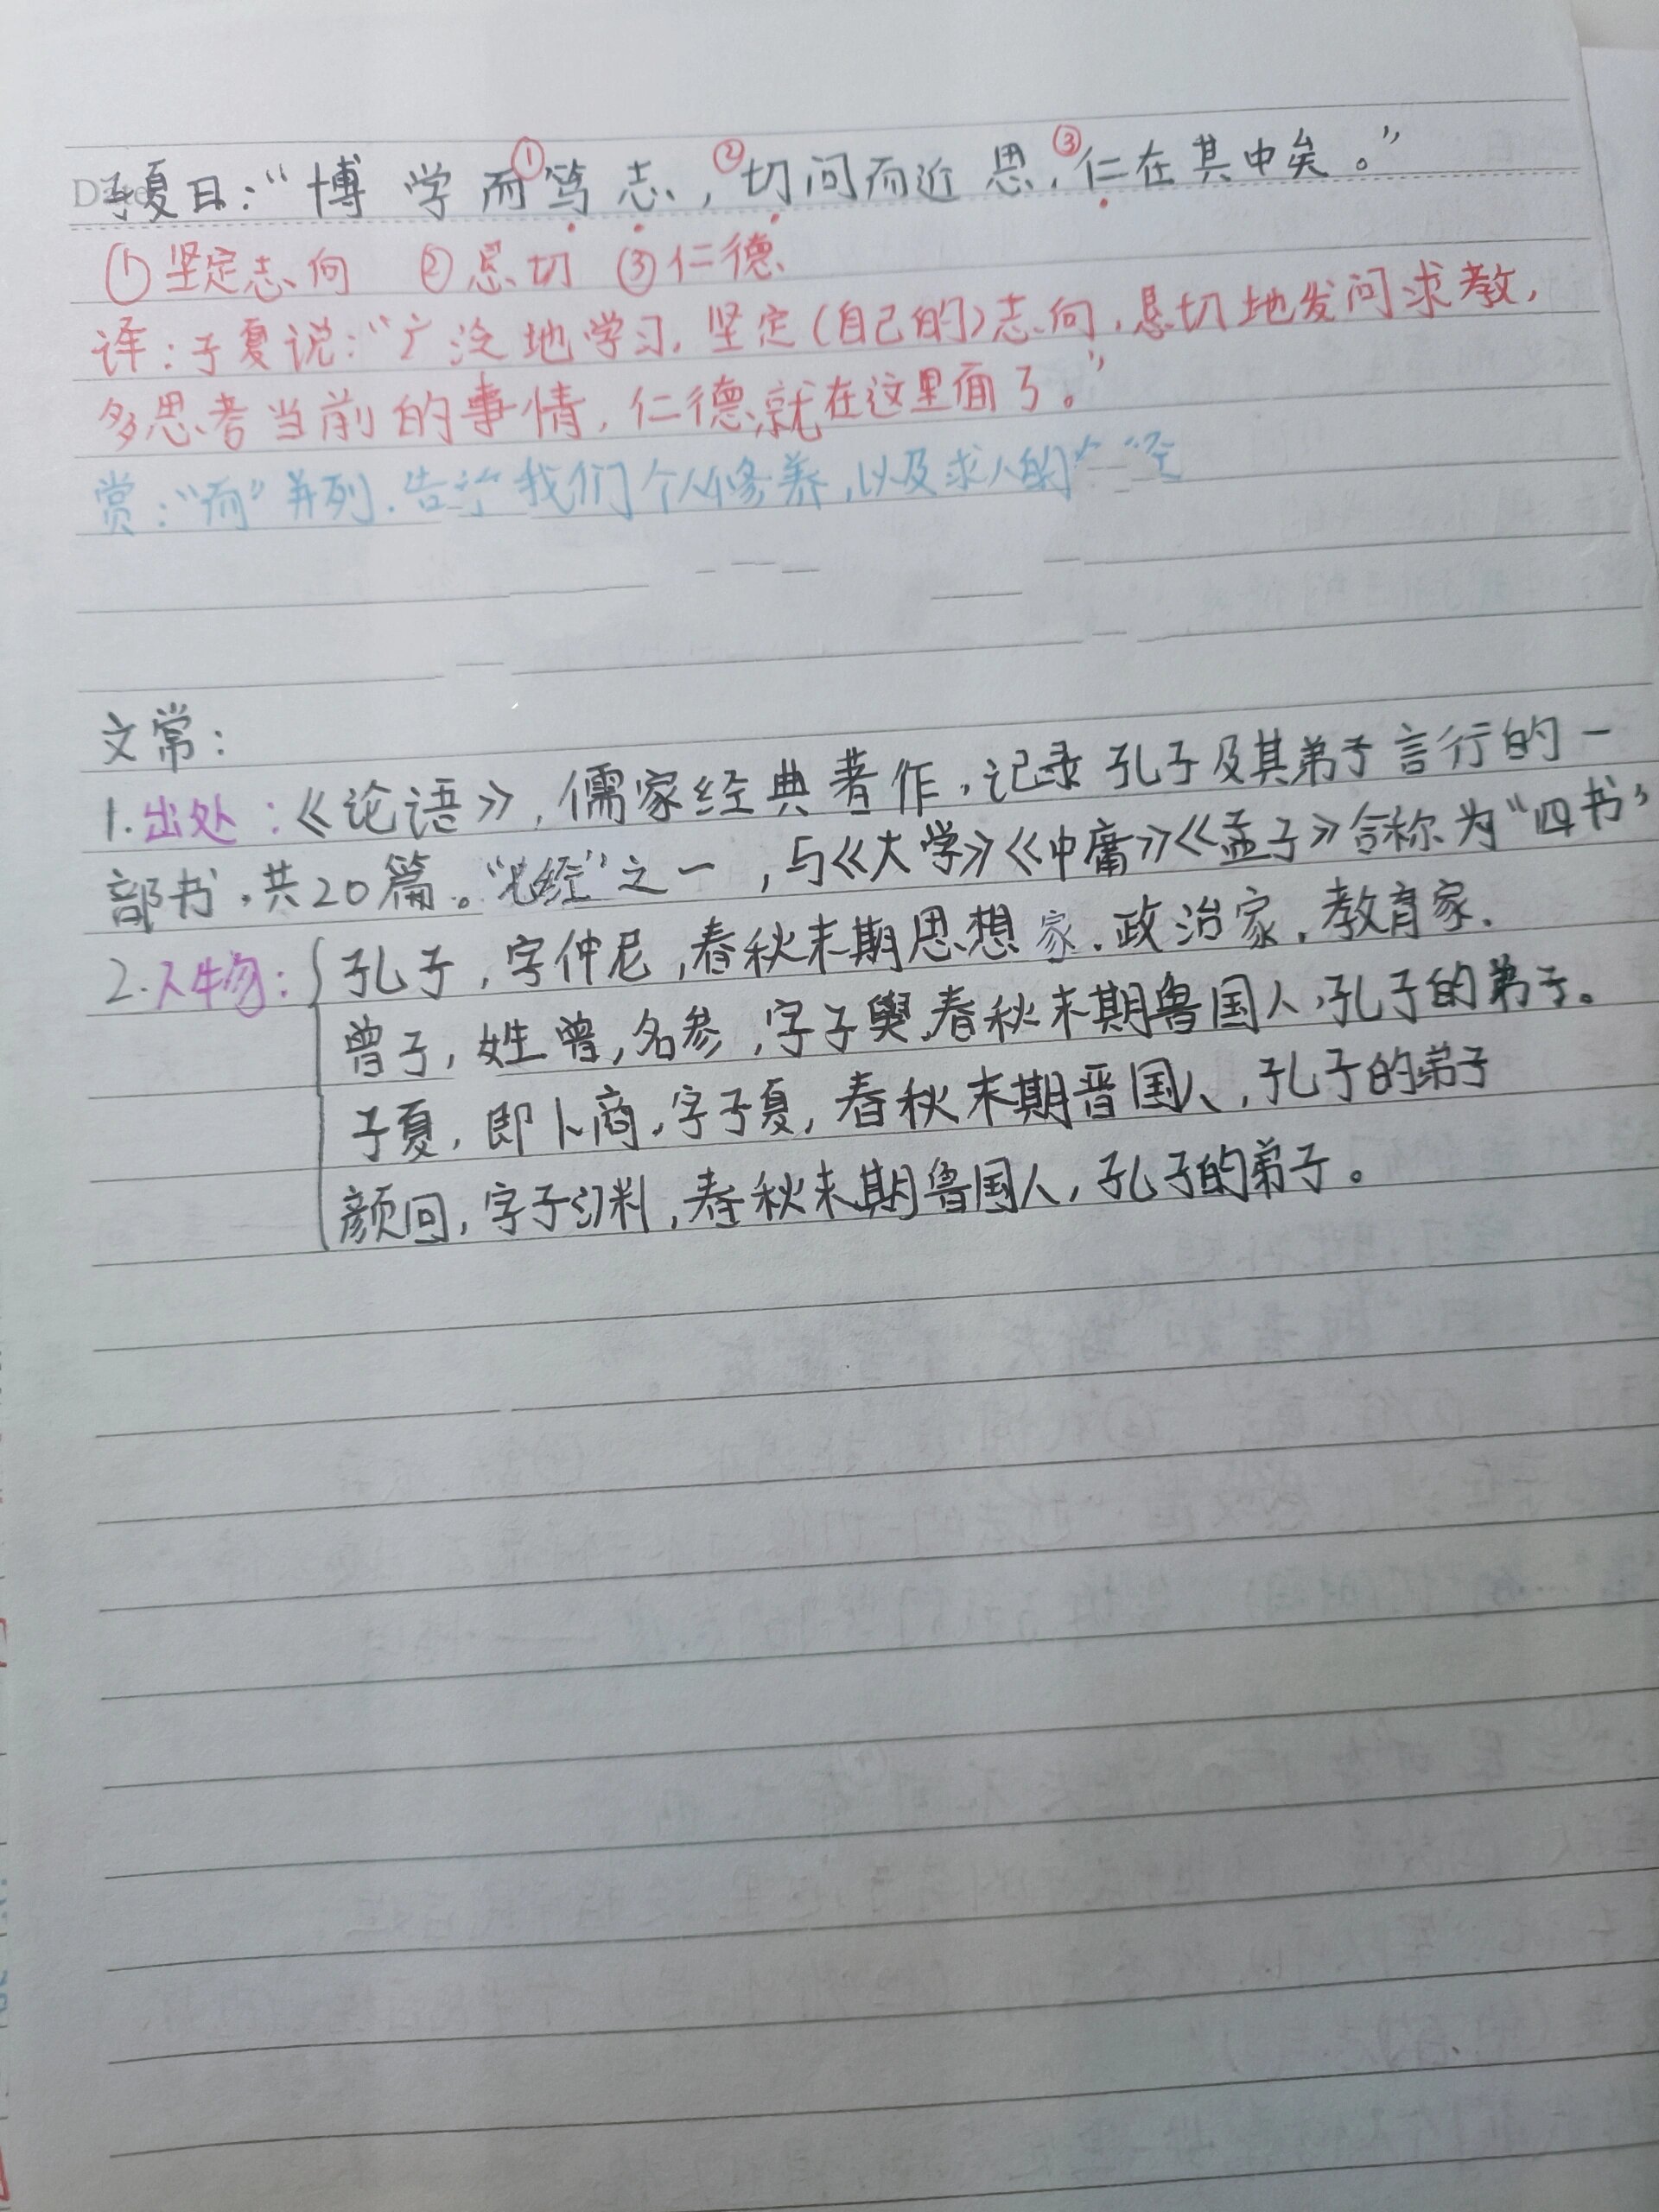 子夏曰：“博学而①笃志，②切问而近思，③仁在其中矣。”
①坚定志向 ②恳切 ③仁德
译：子夏说：“广泛地学习，坚定（自己的）志向，恳切地发问求教，
多思考当前的事情，仁德就在这里面了。”
赏：“而”并列．告诉我们个人修养，以及求人的
文常：
1.出处：《论语》，儒家经典著作，记录孔子及其弟子言行的一
部书，共20篇。 之一，与《大学》《中庸》《孟子》合称为“四书”
2.人物：孔子，字仲尼，春秋末期思想家．政治家．教育家．
曾子，姓曾，名参，字子舆，春秋末期鲁国人，孔子的弟子。
子夏，即卜商，字子夏，春秋末期晋国人，孔子的弟子
颜回，字子，春秋末期鲁国人，孔子的弟子。